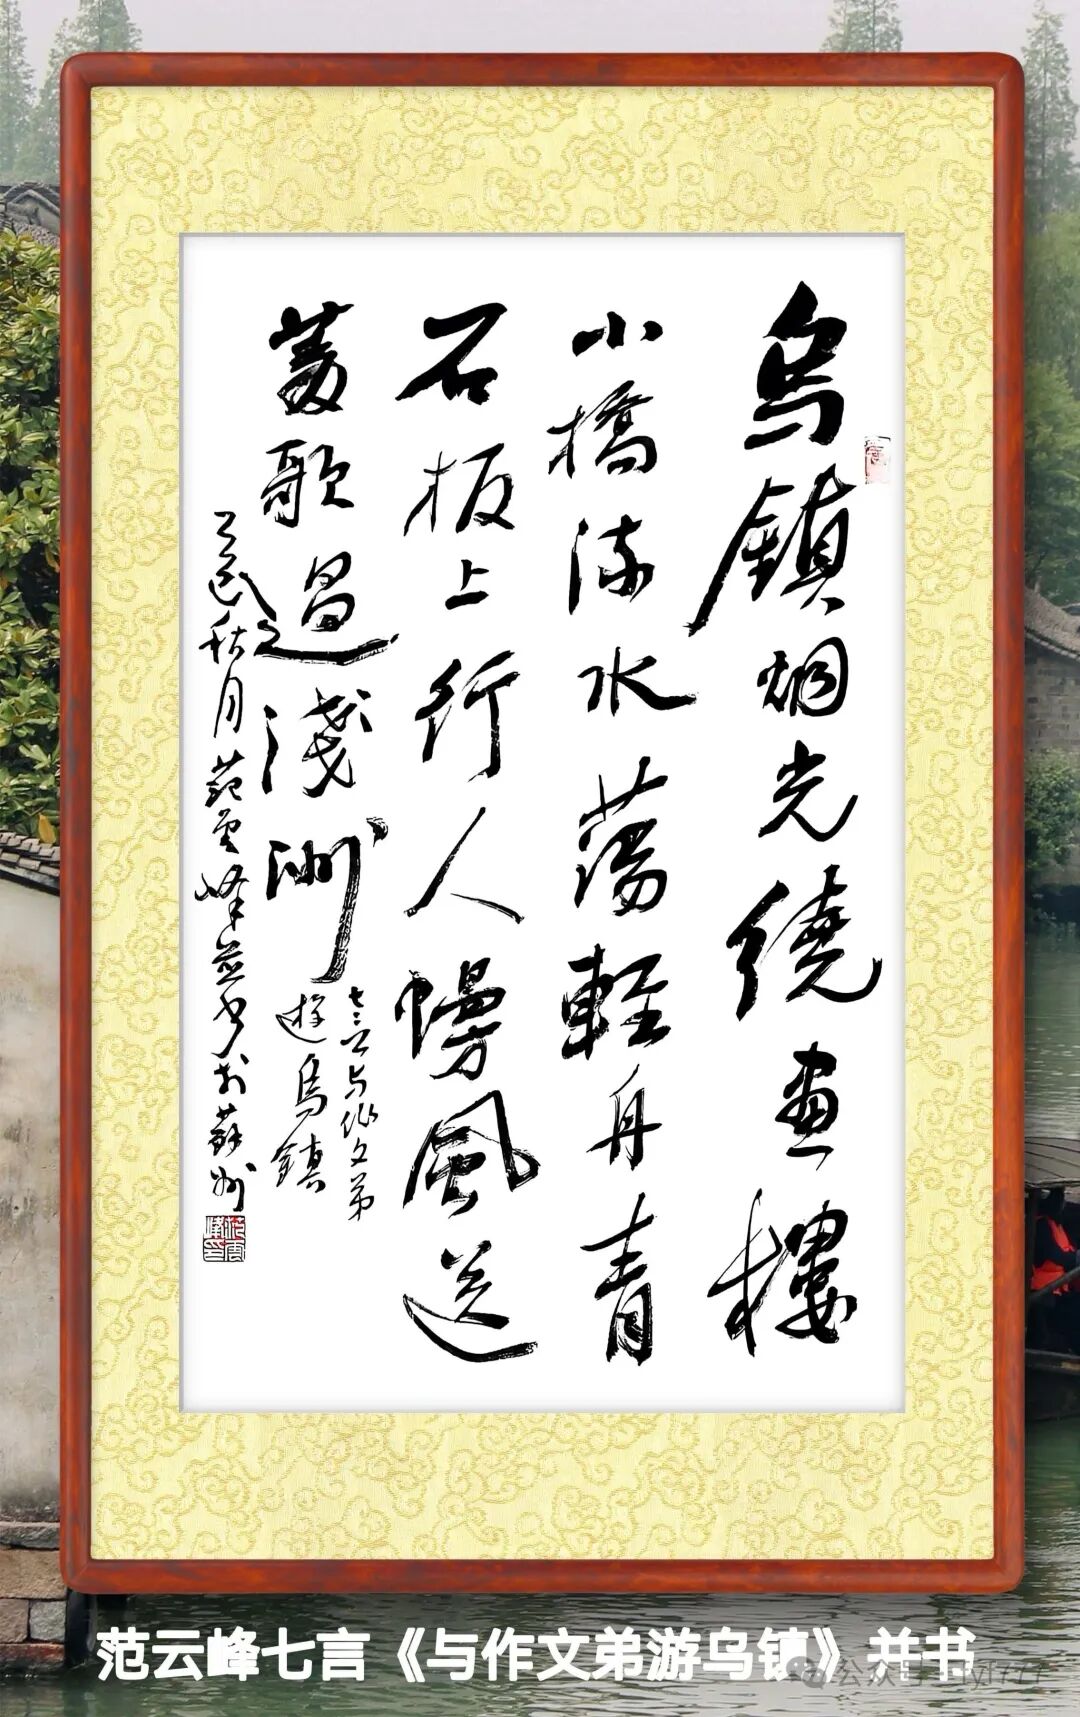 烏鎮烟光繞画樓
小橋流水蕩輕舟青
石板上行人慢風送
菱歌過淺洲
七言与作文弟
遊烏鎮
乙巳秋月范雲峰並书於蘇州
范雲峰印
范云峰七言《与作文弟游乌镇》并书
公众号